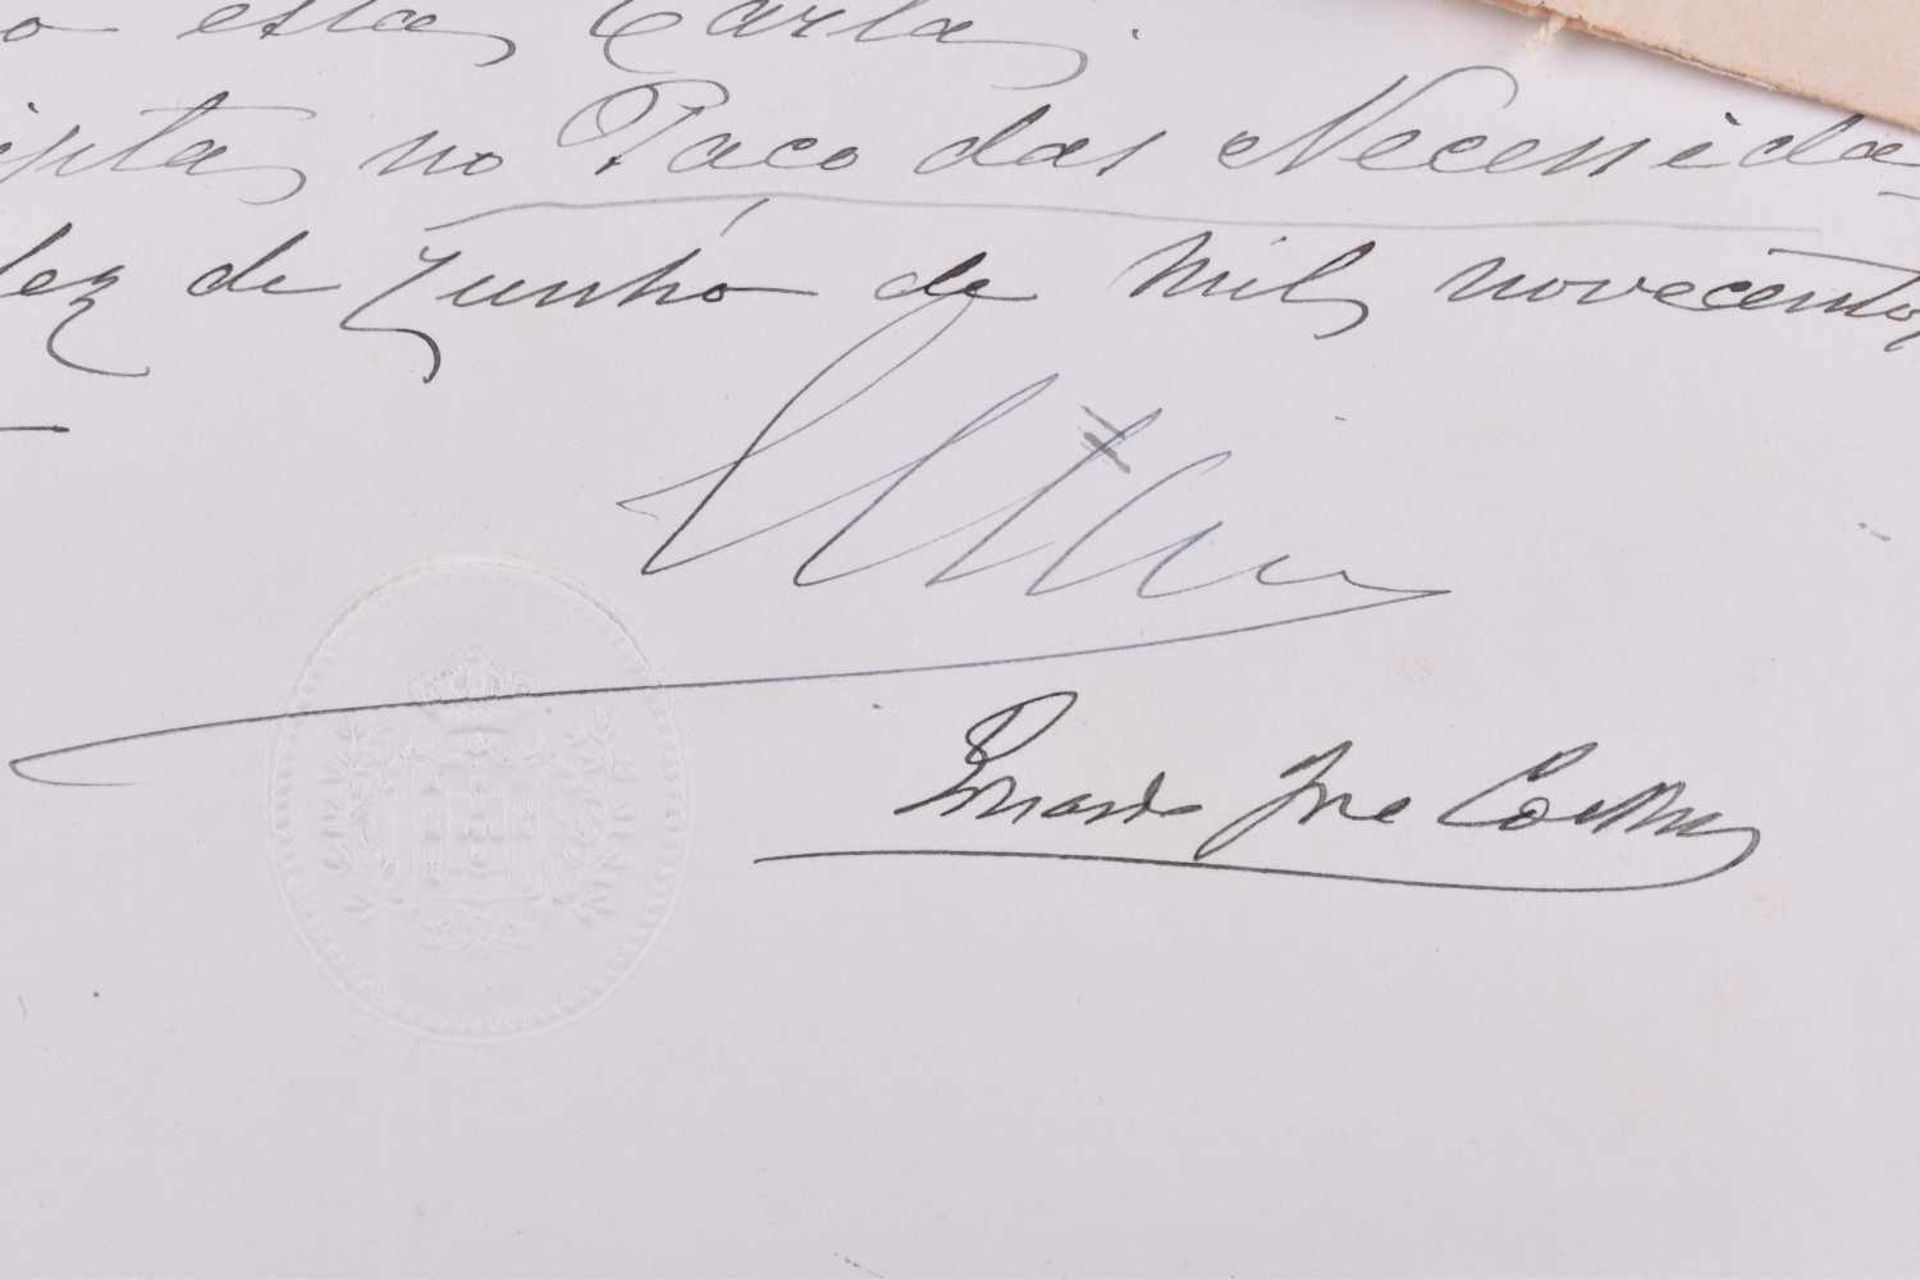 o esta Carta.
ipta no Paço das Necessida
dez de Junho de mil novecentos
El Rei
Eduardo José Coelho